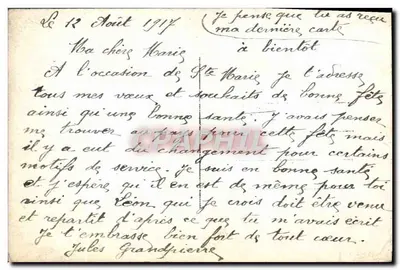 Le 12 Août 1917
Je pense que tu as reçu
ma dernière carte
à bientôt
Ma chère Marie
A l'occasion de Ste Marie je t'adresse
tous mes vœux et souhaits de bonne fête
ainsi qu'une bonne santé. J'avais penser
me trouver a pour cette fête mais
il y a eut du changement pour certains
motifs de service. Je suis en bonne santé
et j'espère qu'il en est de même pour toi
ainsi que Léon qui je crois doit être venu
et repartit d'après ce que tu m'avais écrit
Je t'embrasse bien fort de tout cœur.
Jules Grandpierre